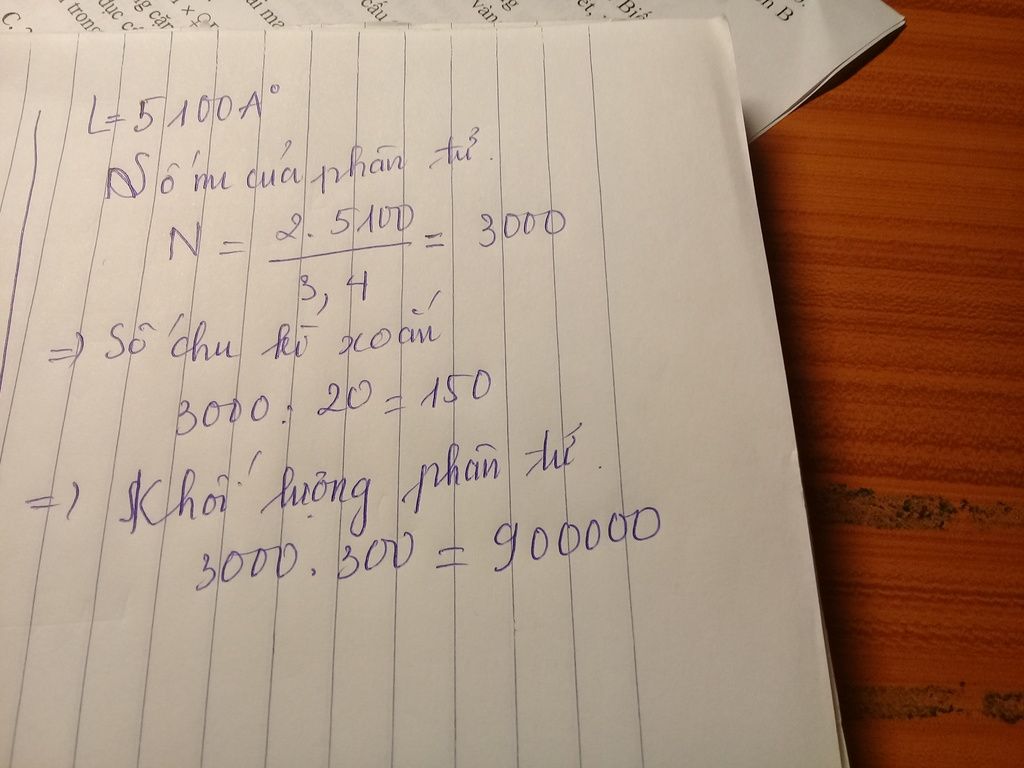 L = 5100A°
Số nu của phân tử.
N = 2. 5100 / 3,4 = 3000
=) Số chu kì xoắn
3000 : 20 = 150
=) Khối lượng phân tử.
3000 . 300 = 900000